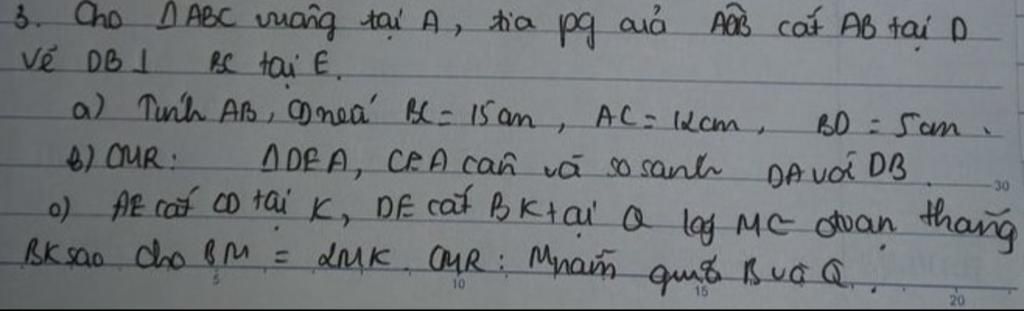 3. Cho ΔABC vuông tại A, tia pg của AĈB cắt AB tại D
Vẽ DB ⊥ BC tại E.
a) Tính AB, CD nếu BC = 15cm, AC = 12cm, BD = 5cm.
b) CMR: ΔDEA, CEA cân và so sánh DA với DB.
c) AE cắt CD tại K, DE cắt BK tại Q lấy M ∈ đoạn thẳng
BK sao cho BM = 2MK. CMR: M nằm giữa B và Q.
30
5 10 15 20